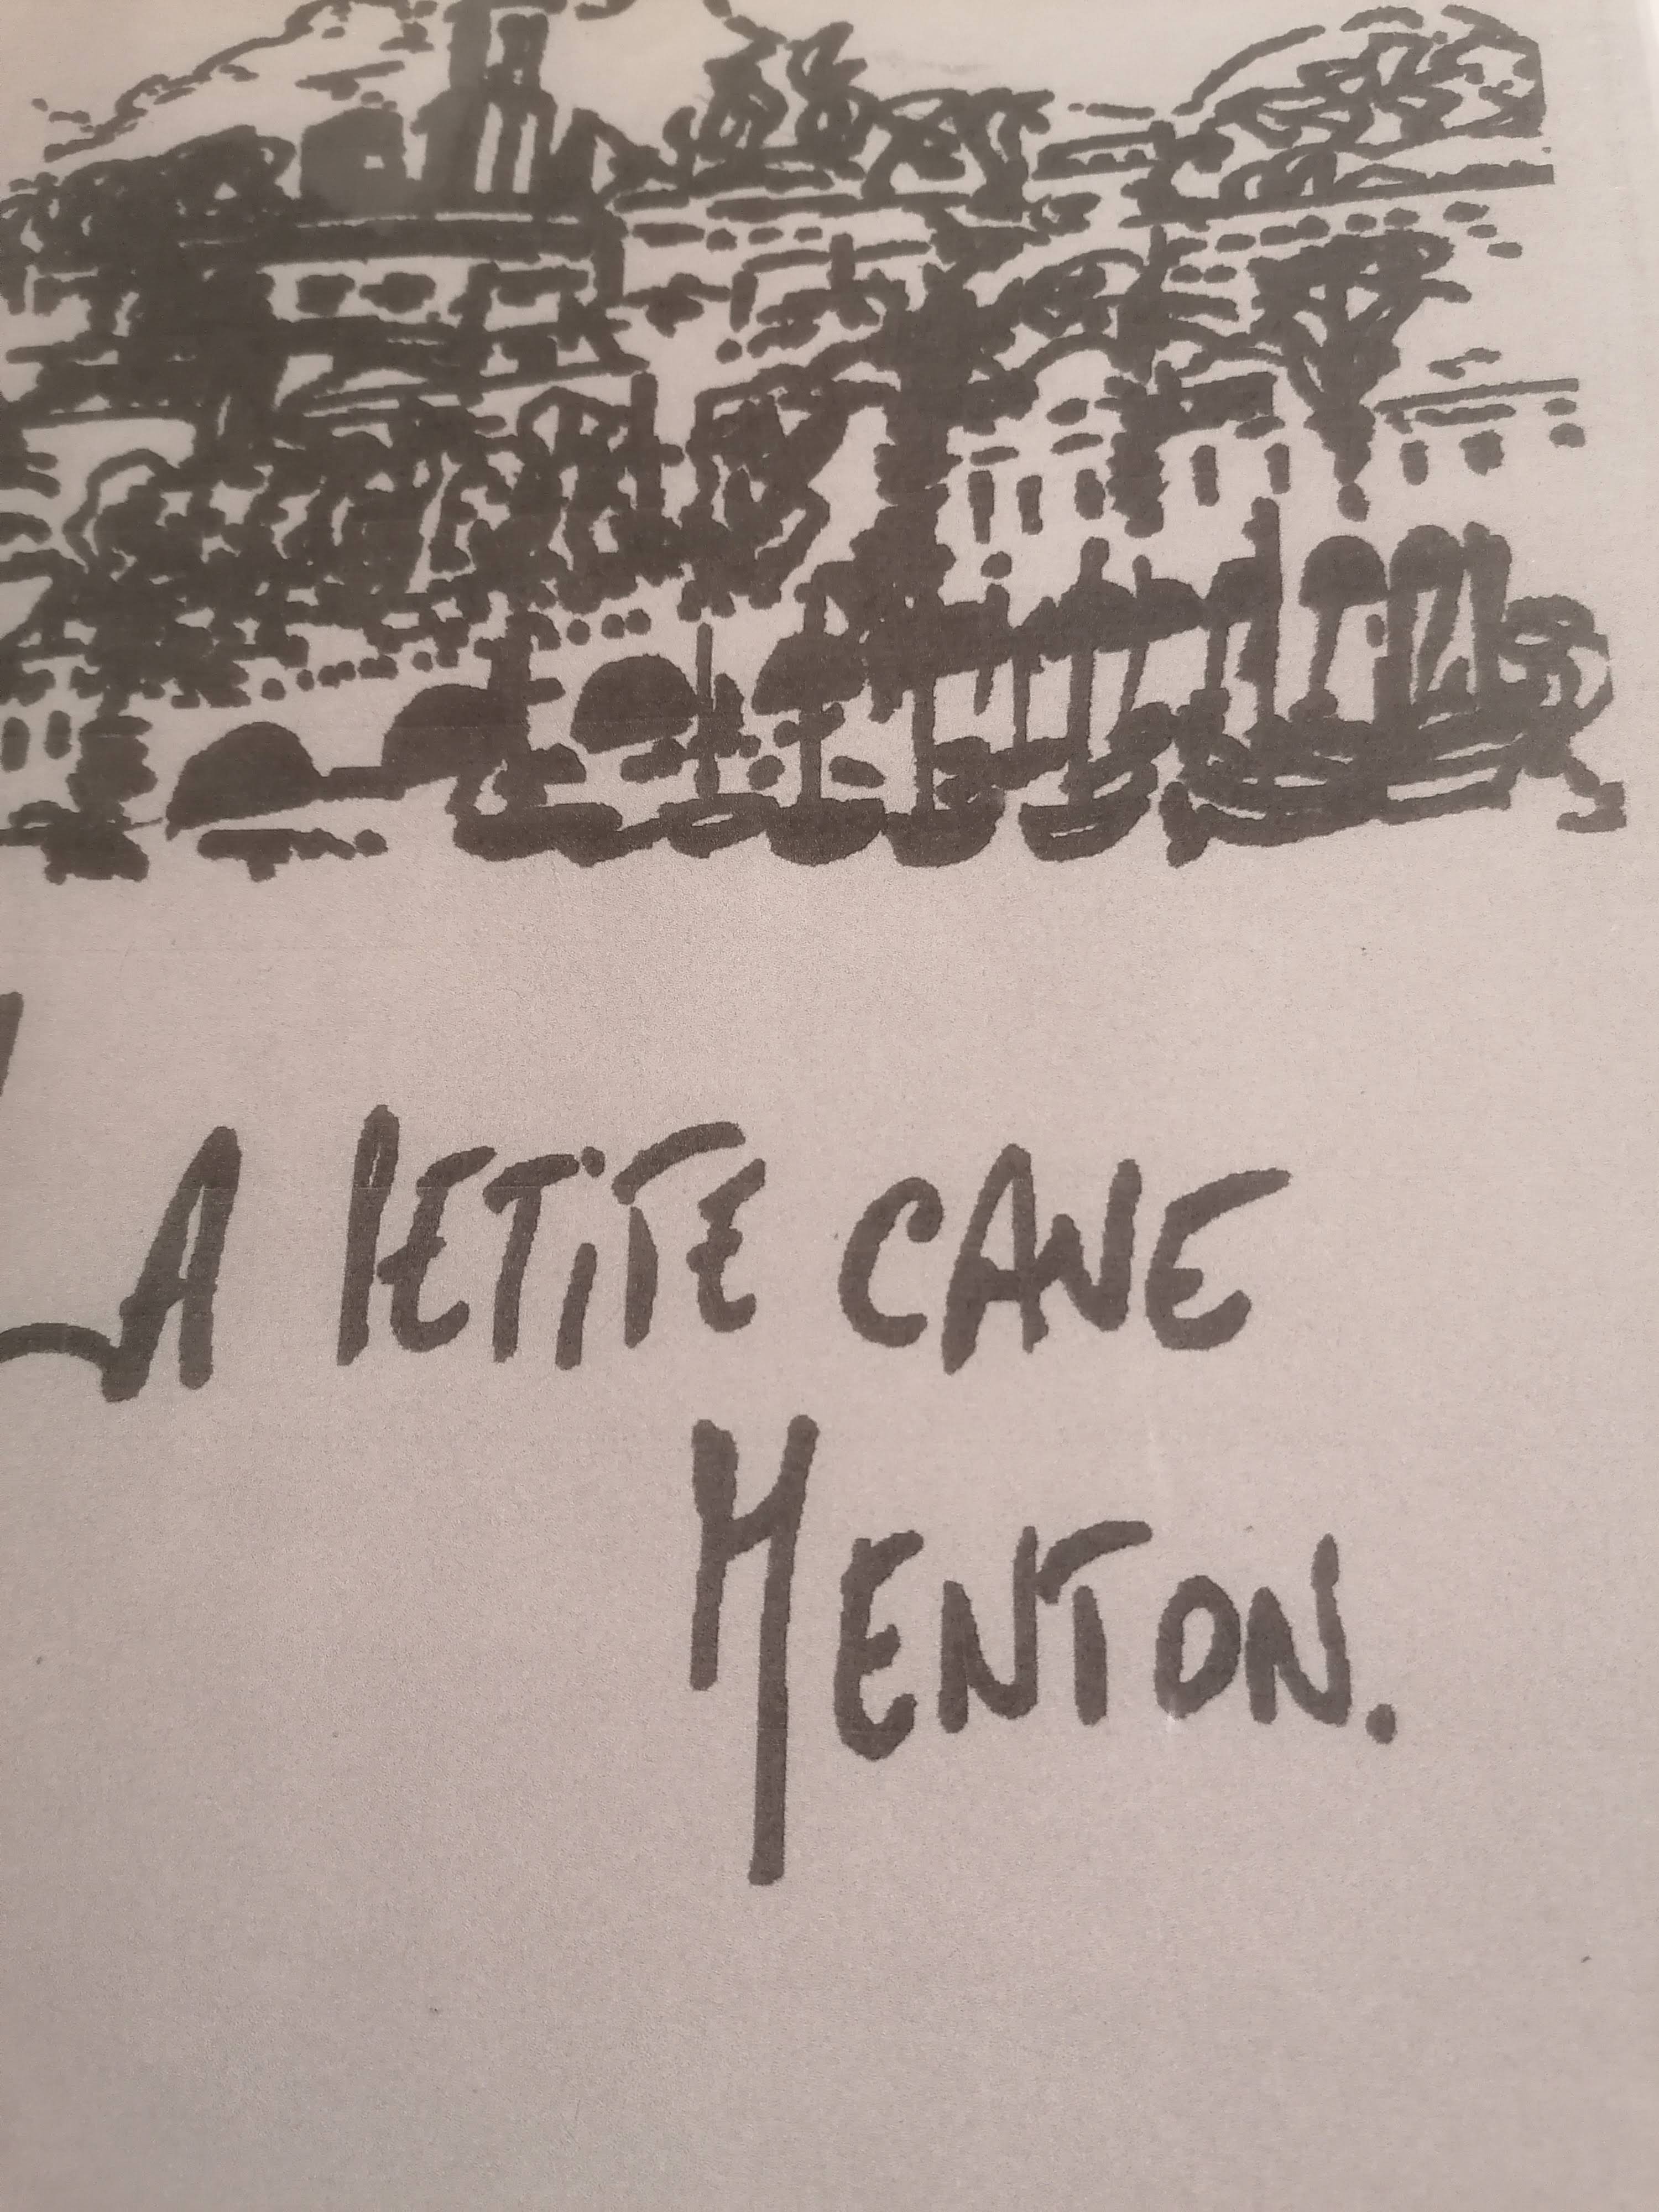 LA PETiTE CAVE
MENTON.